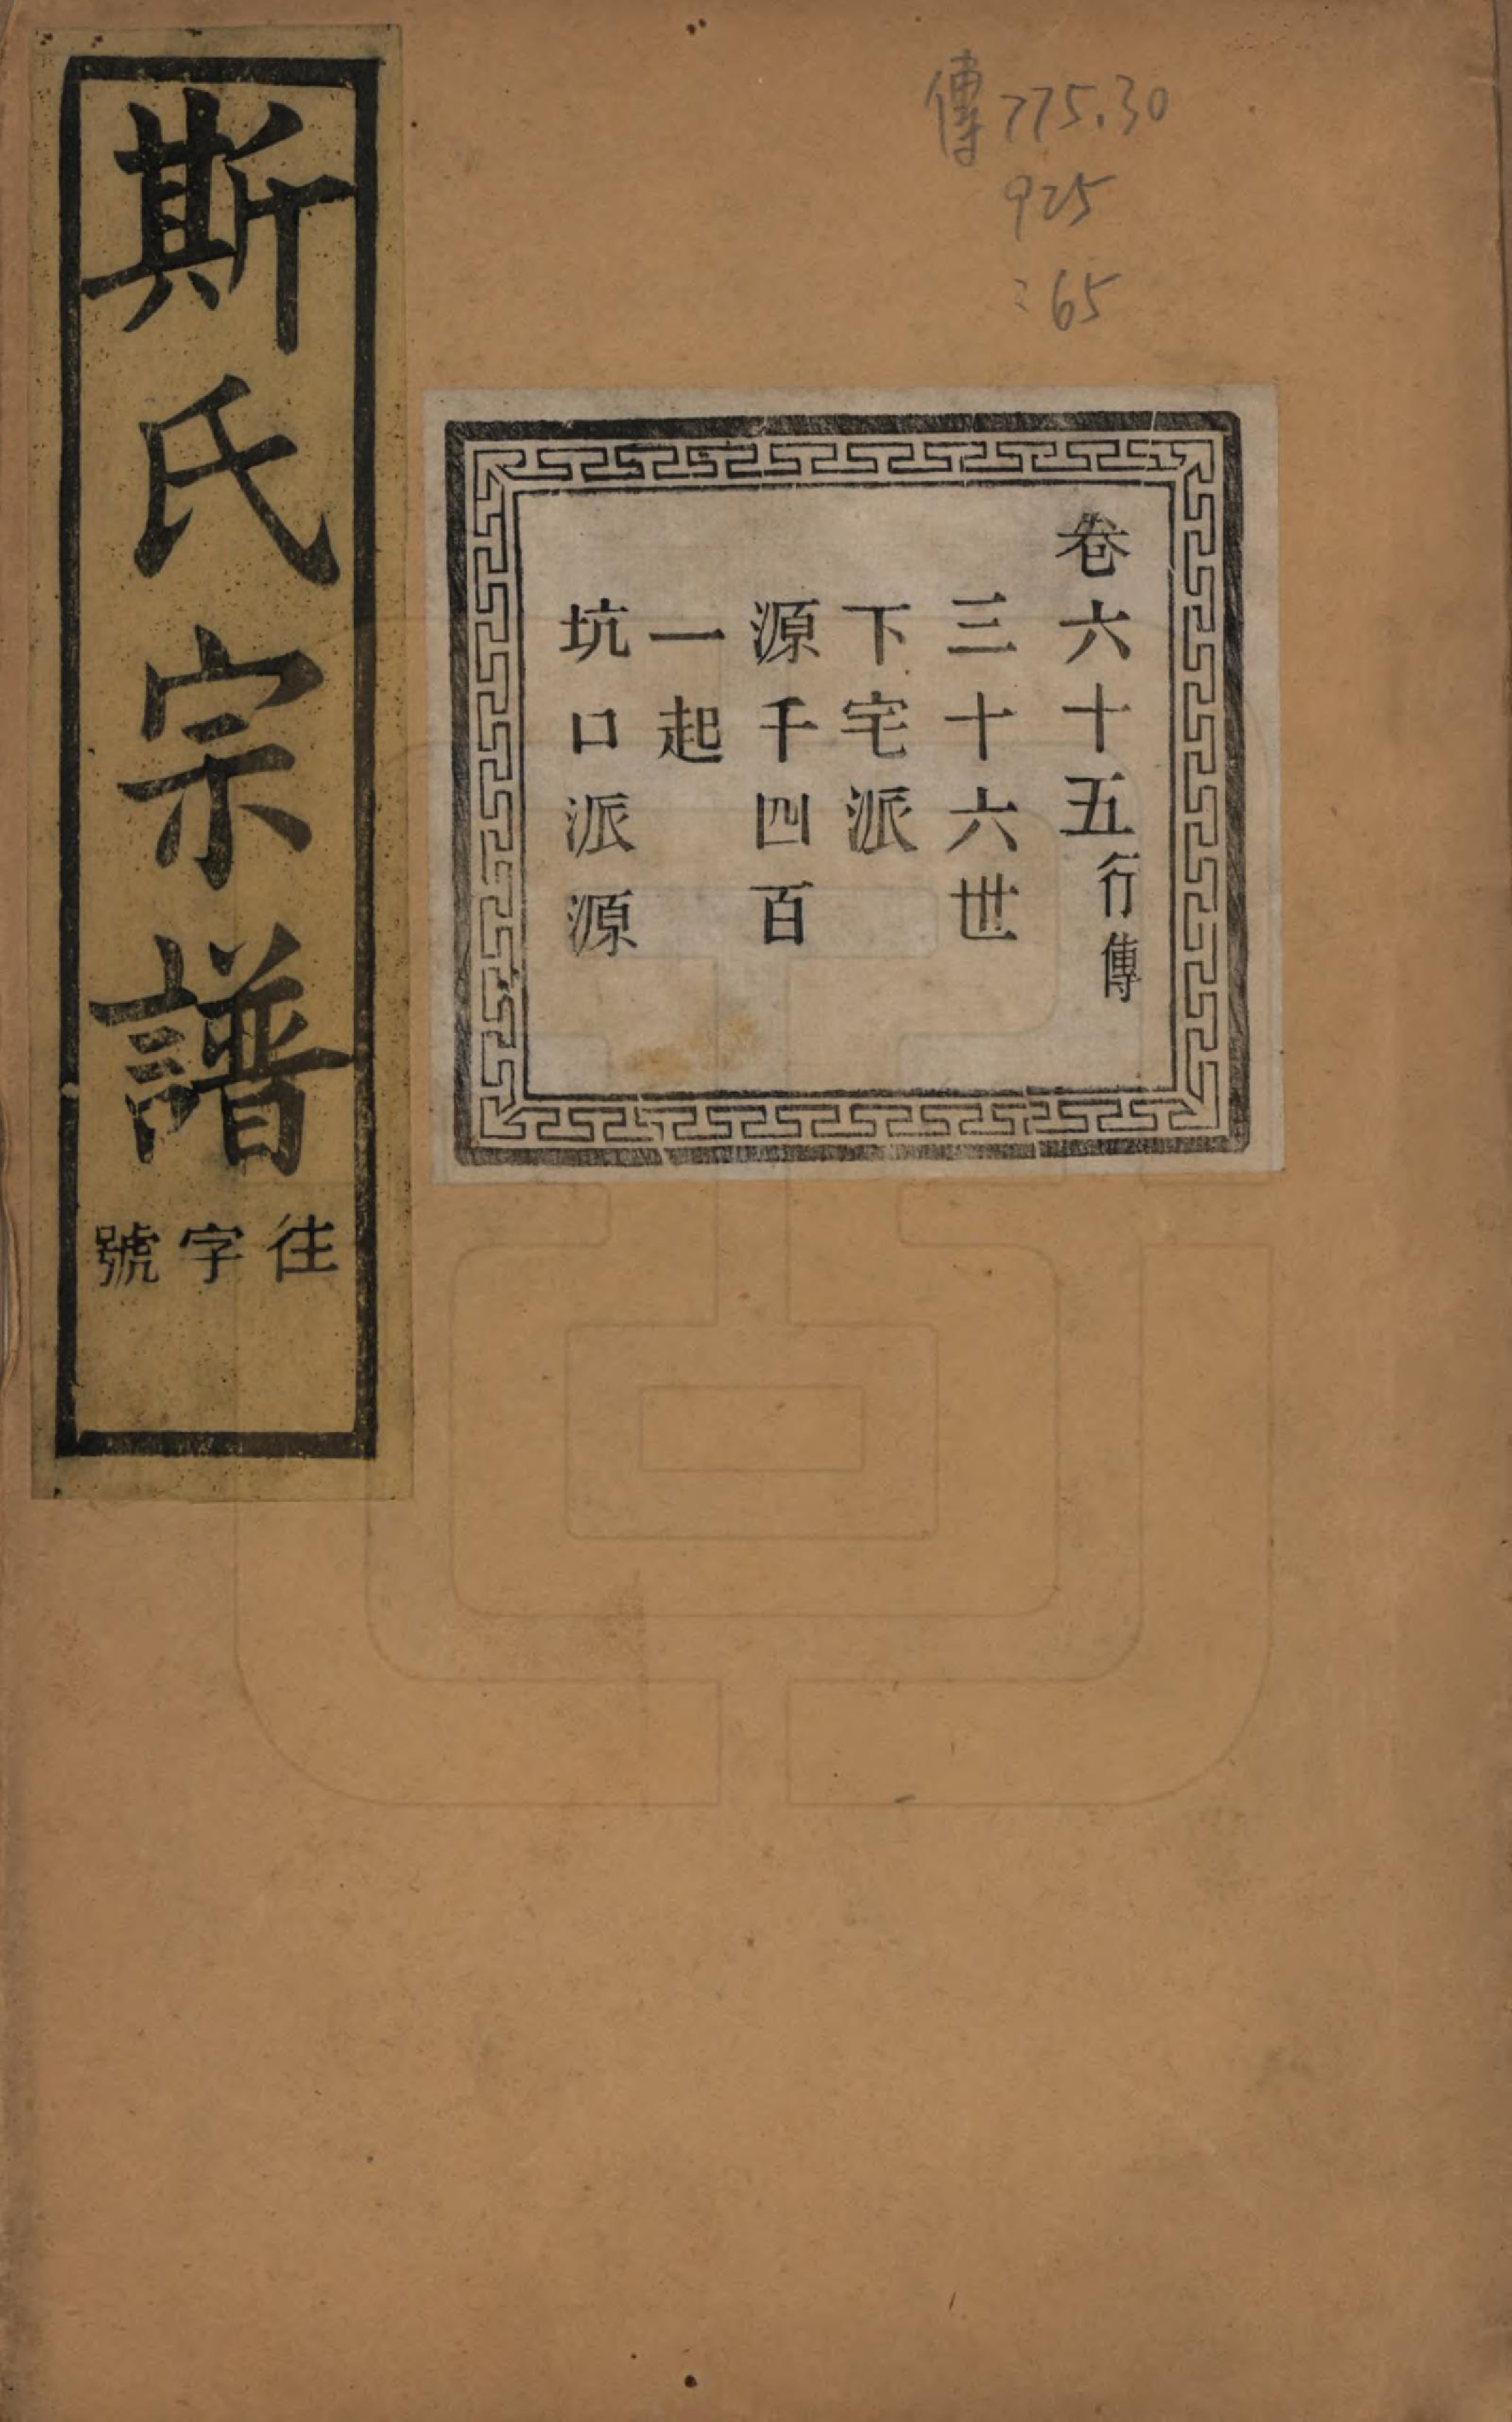 斯氏宗譜
往字號
傳775.30
925
:65
卷六十五行傳
三十六世
下宅派
源千四百
一起
坑口派源